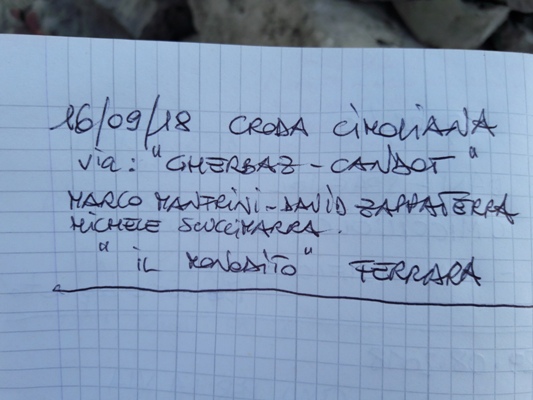 16/09/18 CRODA CIMOLIANA
via: "GHERBAZ-CANDOT"
MARCO MANFRINI-DAVID ZAPPATERRA
MICHELE SUCCIMARRA.
"IL MONODITO" FERRARA